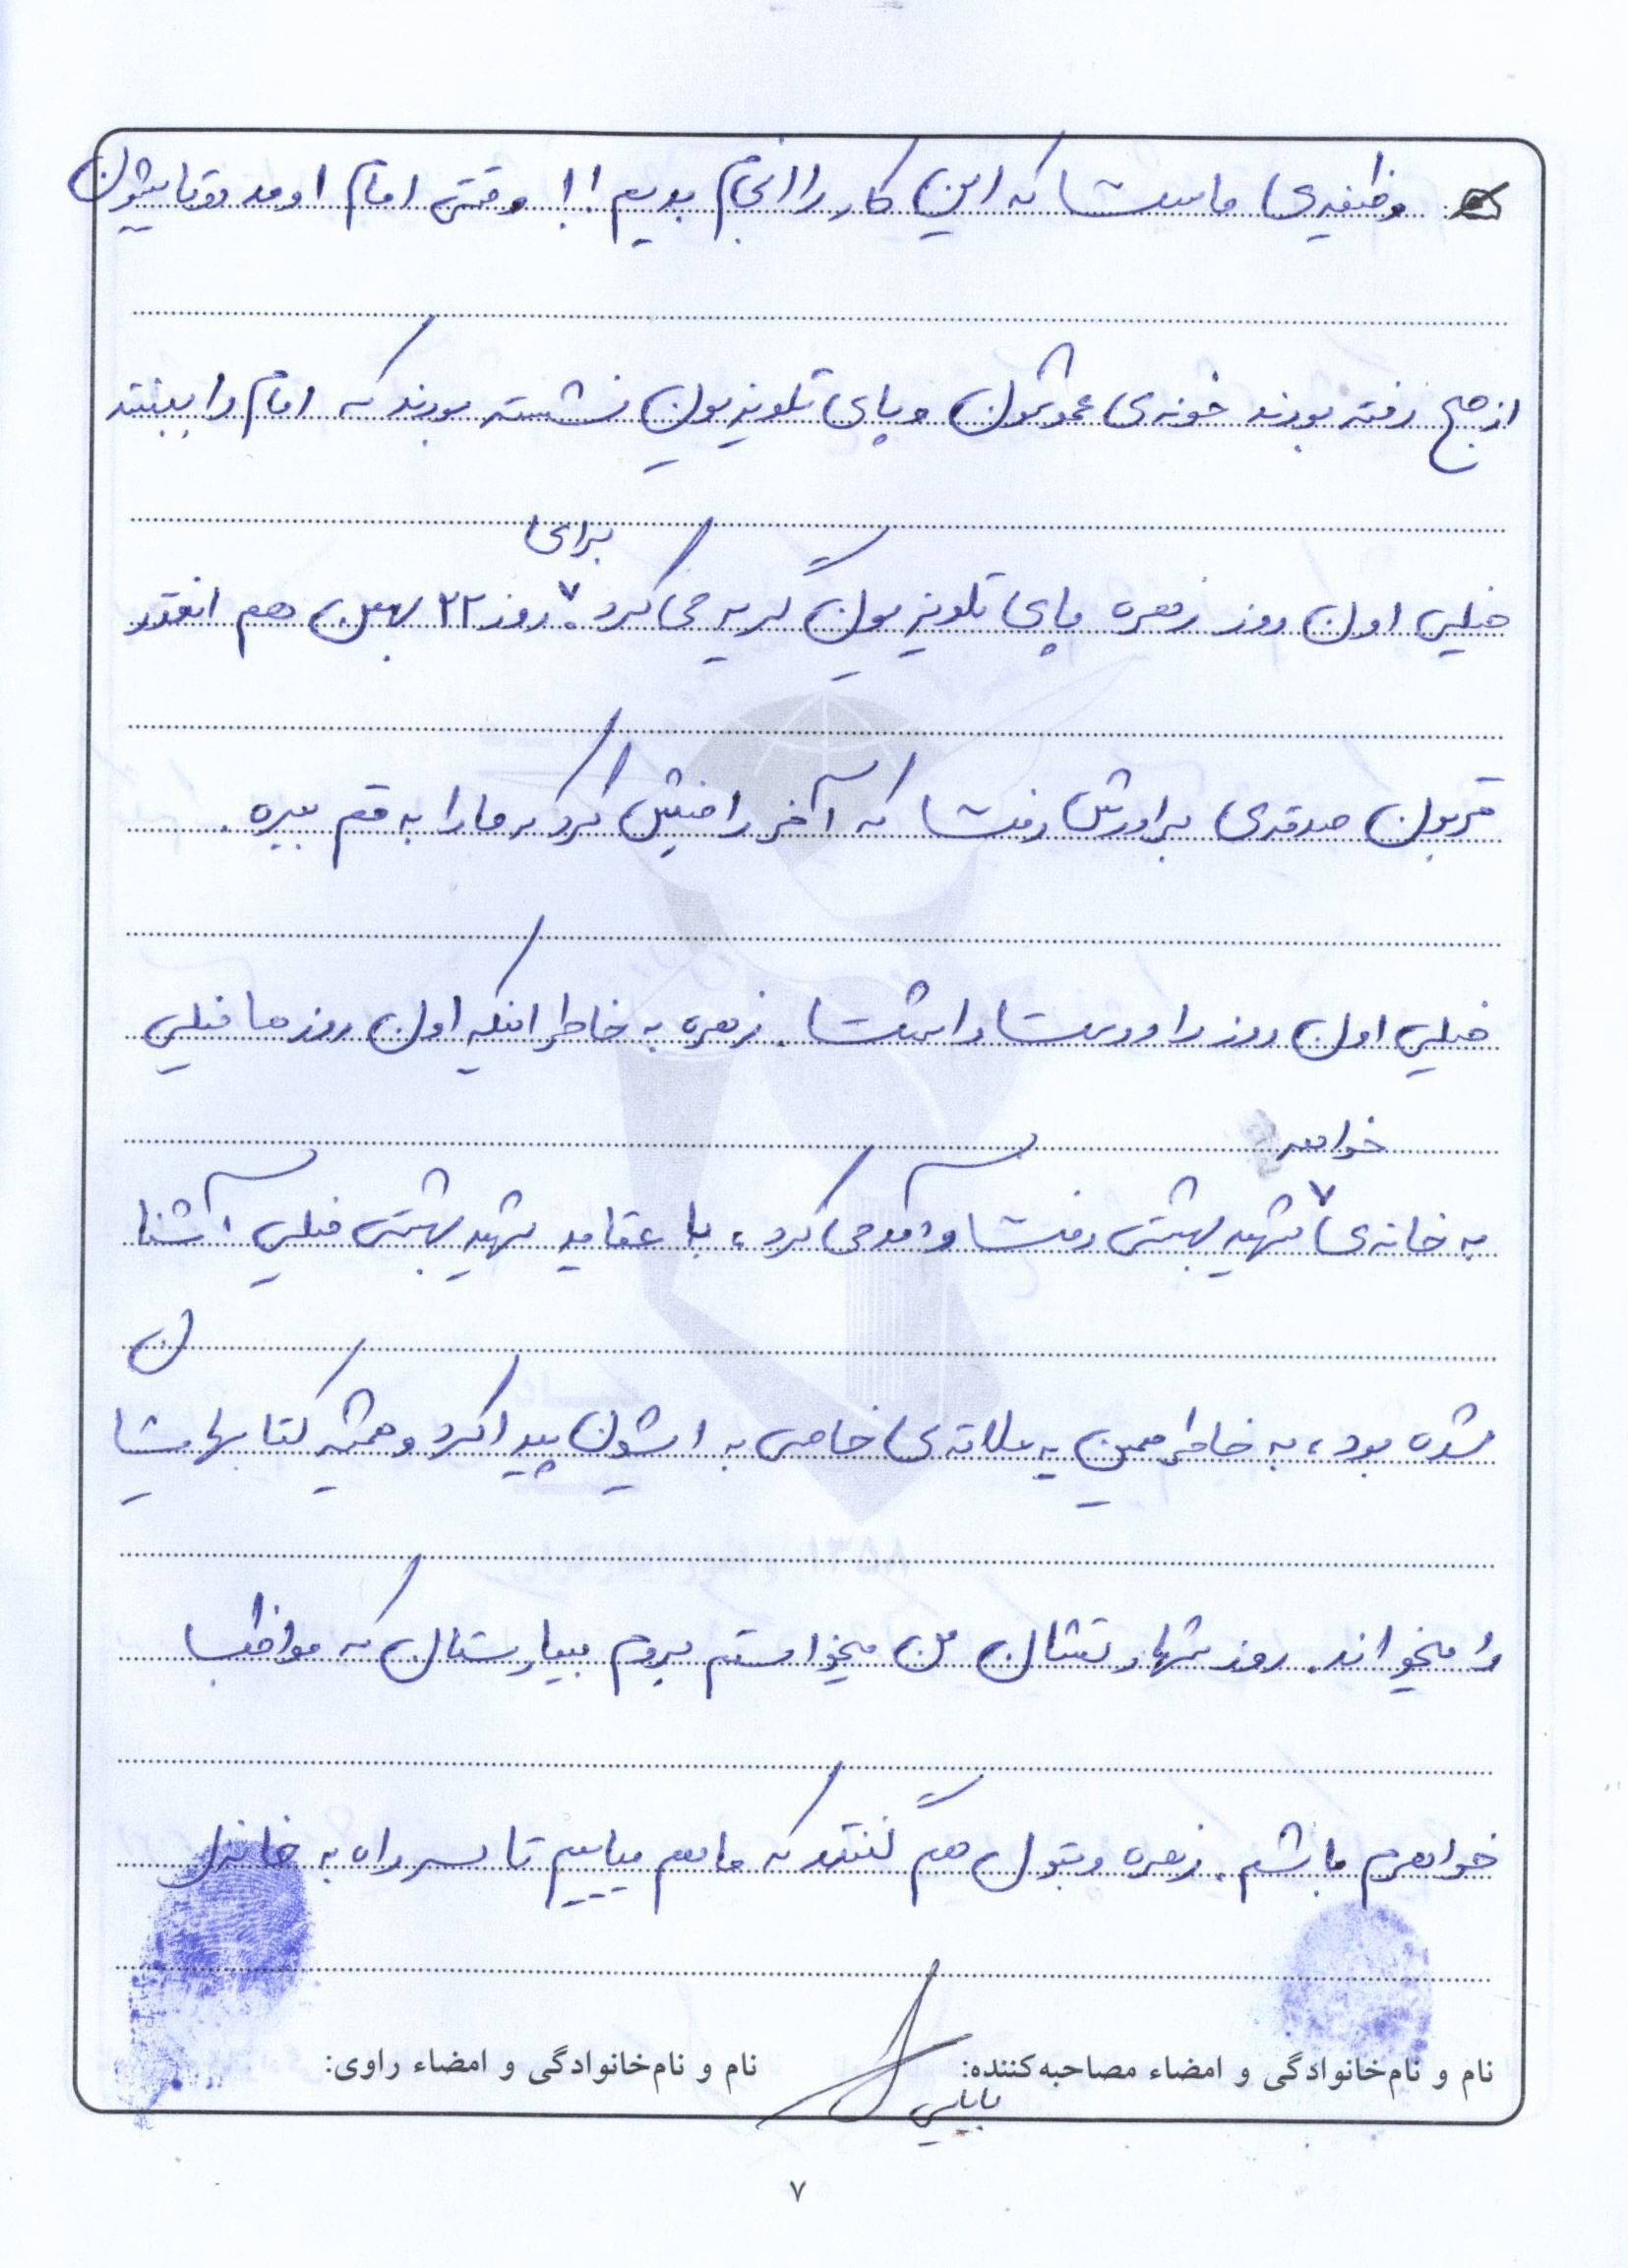 وظیفه‌ی ماست که این کار را انجام بدیم!! وقتی امام اومد دوتاییشون
از صبح رفته بودند خونه‌ی عموشون و پای تلویزیون نشسته بودند که امام را ببینند
خیلی اون روز زهره پای تلویزیون گریه می‌کرد. برای روز ۲۲ بهمن هم انقدر
قربون صدقه‌ی برادرش رفت که آخر راضیش کرد که ما را به قم ببره.
خیلی اون روز را دوست داشت. زهره به خاطر اینکه اون روزها خیلی
به خانه‌ی خواهر شهید بهشتی رفت و آمد می‌کرد، با عقاید شهید بهشتی خیلی آشنا
شده بود، به خاطر همین یه علاقه‌ی خاصی به ایشون پیدا کرد و همیشه کتابهاشان
را میخواند. روز شهادتشان من میخواستم بروم بیمارستان که مواظب
خواهرم باشم. زهره و بتول هم گفتند که ما هم میاییم تا سر راه به خانه‌ی
نام و نام‌خانوادگی و امضاء مصاحبه‌کننده: نام و نام‌خانوادگی و امضاء راوی:
بابایی
۷